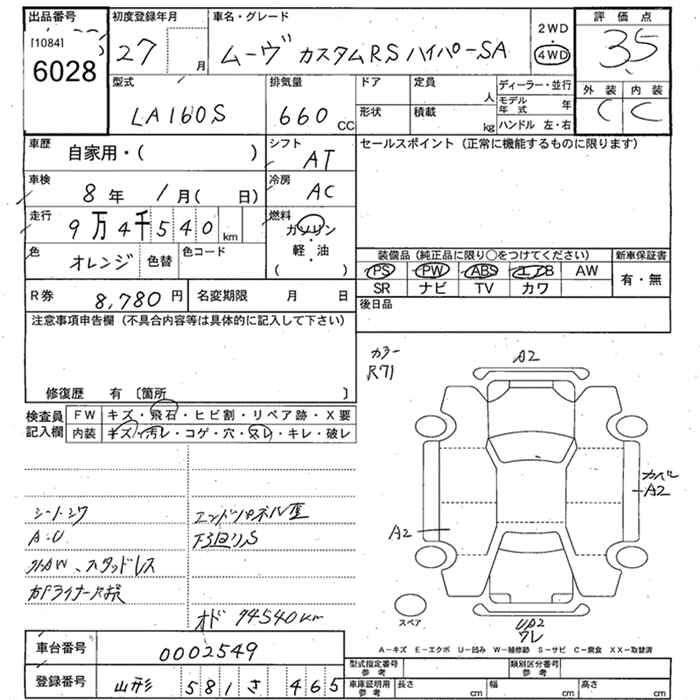 出品番号 初度登録年月 車名・グレード 2WD 評価点
[1084] 27 月 ムーヴ カスタムRS ハイパーSA 4WD 3.5
6028
型式 排気量 ドア 定員 ディーラー・並行 外装 内装
LA160S 660 CC 人 モデル年式 年 C C
形状 積載 kg ハンドル 左・右
車歴 自家用・( ) シフト AT セールスポイント(正常に機能するものに限ります)
車検 8年 1月( 日) 冷房 AC
走行 9万4千540km 燃料 ガソリン・軽・油 ( )
色 オレンジ 色替 色コード
装備品(純正品に限り○をつけてください) 新車保証書
PS PW ABS エアB AW 有・無
SR ナビ TV カワ
R券 8,780円 名変期限 月 日 後日品
注意事項申告欄(不具合内容等は具体的に記入して下さい)
カラー
R71
A2
修復歴 有〔箇所 〕
検査員記入欄 FW キズ・飛石・ヒビ割・リペア跡・X要
内装 キズ・汚レ・コゲ・穴・スレ・キレ・破レ
カバー
A2
A2
シートシワ エンドパネル
A・U 下回りS
スタッドレス
オド 94540km
スペア
A-キズ E-エクボ U-凹み W-補修跡 S-サビ C-腐食 XX-取替済
車台番号 0002549
型式指定番号 参考 類別区分番号 参考
登録番号 山形 581 さ 465
車庫証明用 参考 長さ cm 幅 cm 高さ cm